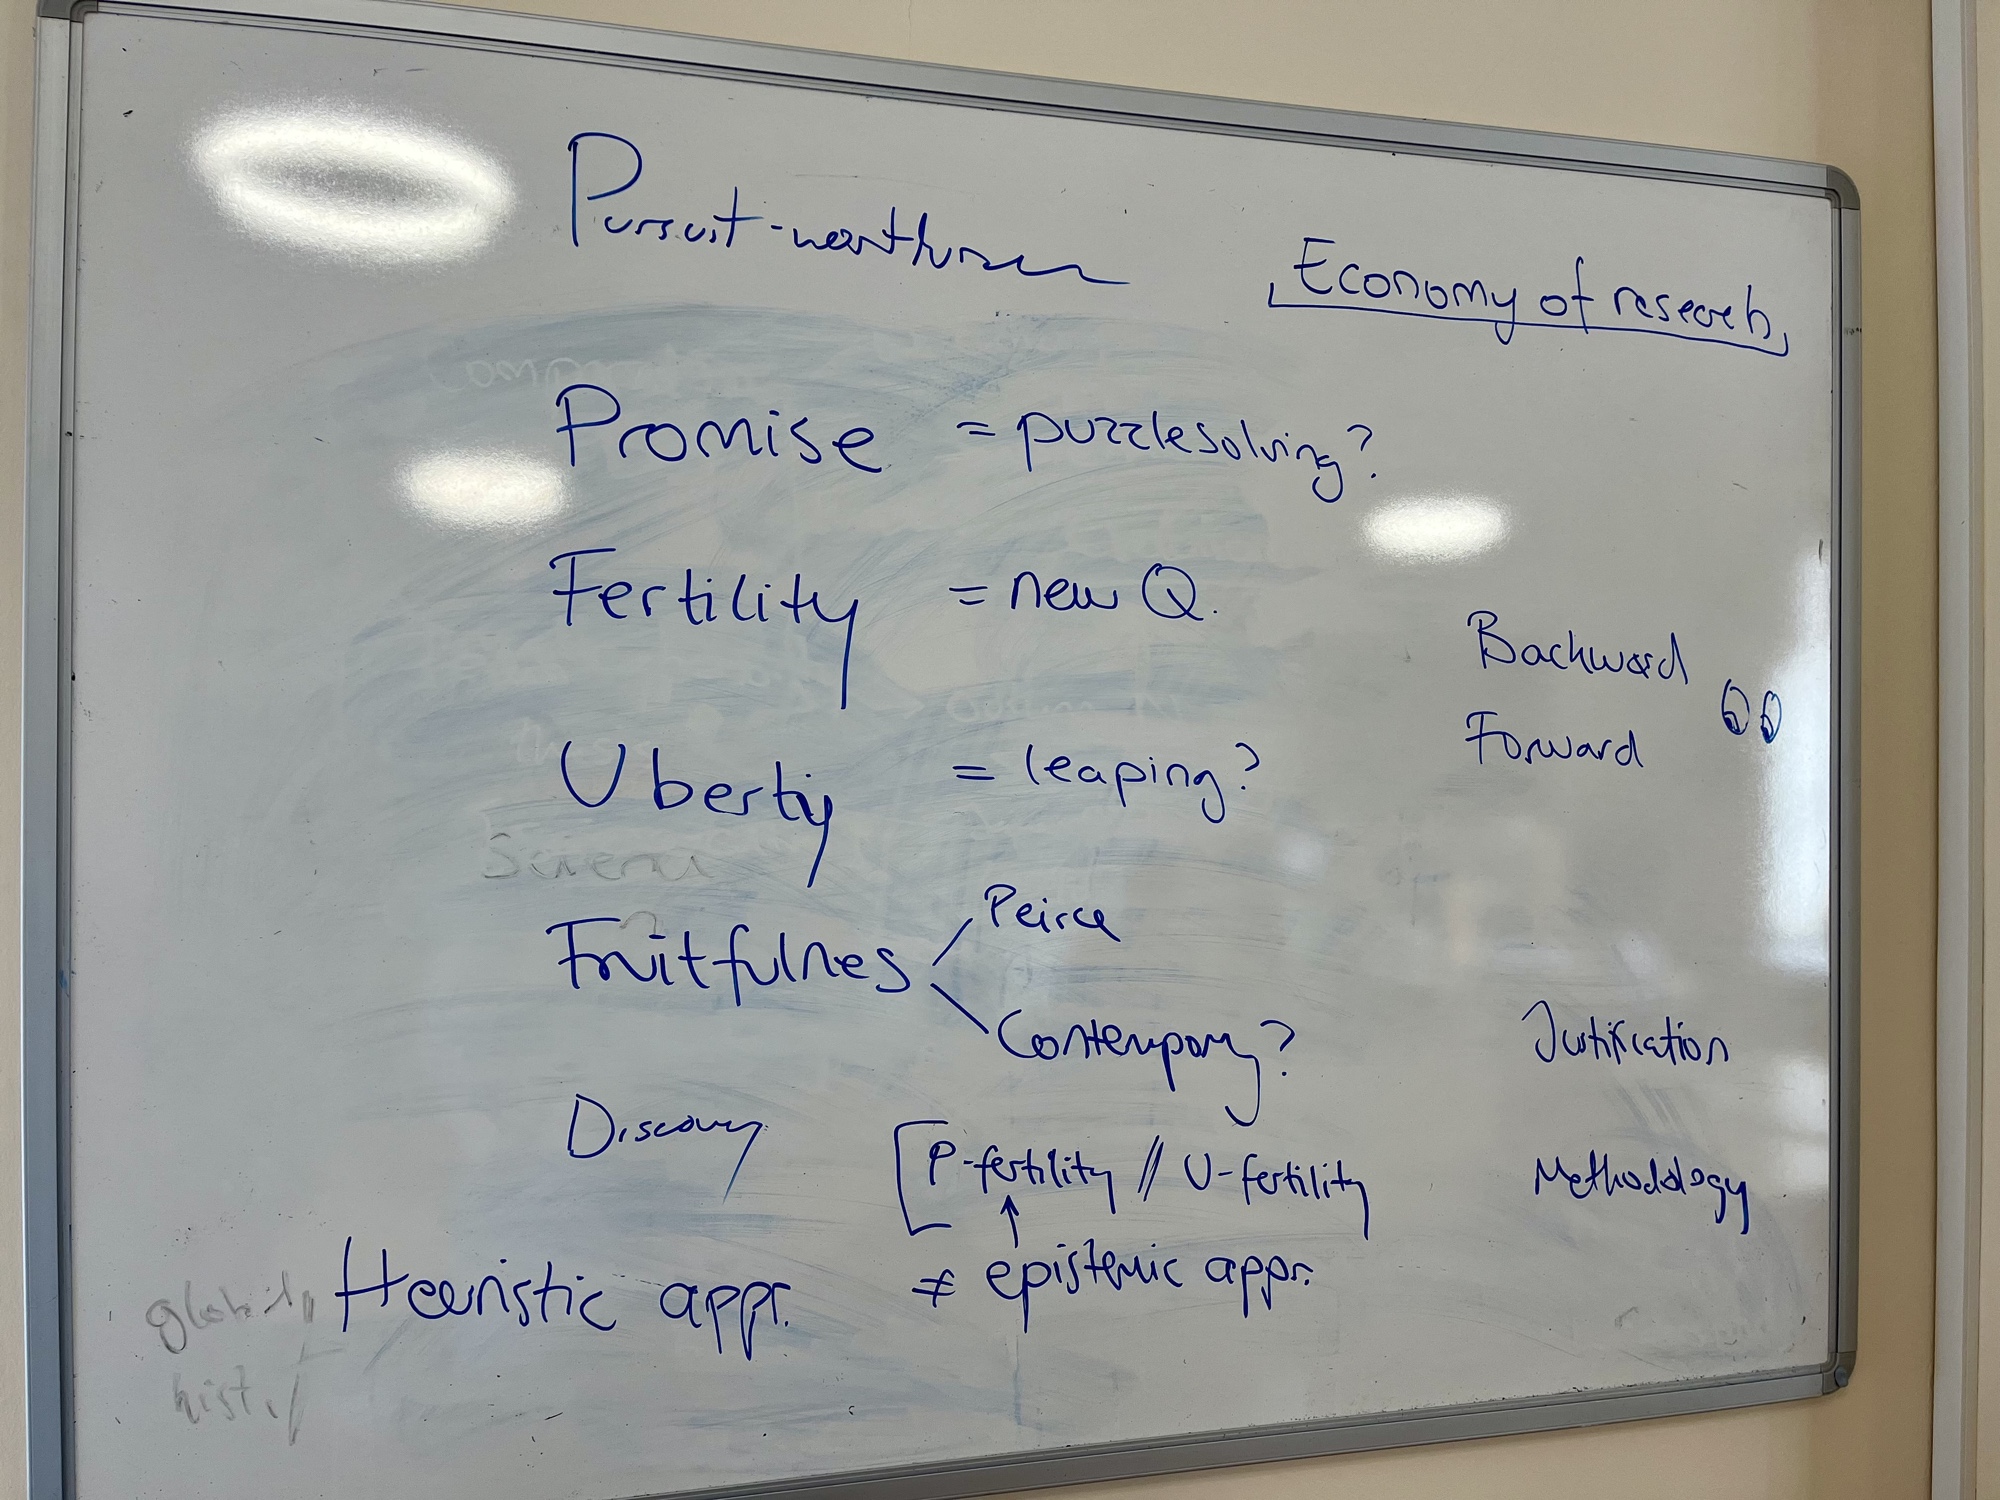 Pursuit-worthiness
Economy of research
Promise = puzzlesolving?
Fertility = new Q.
Backward
Forward
Uberty = leaping?
Peirce
Fruitfulnes
Contempory?
Justification
Discovery
[P-fertility // U-fertility
Methodology
↑
Heuristic appr. ≠ epistemic appr.
hist.